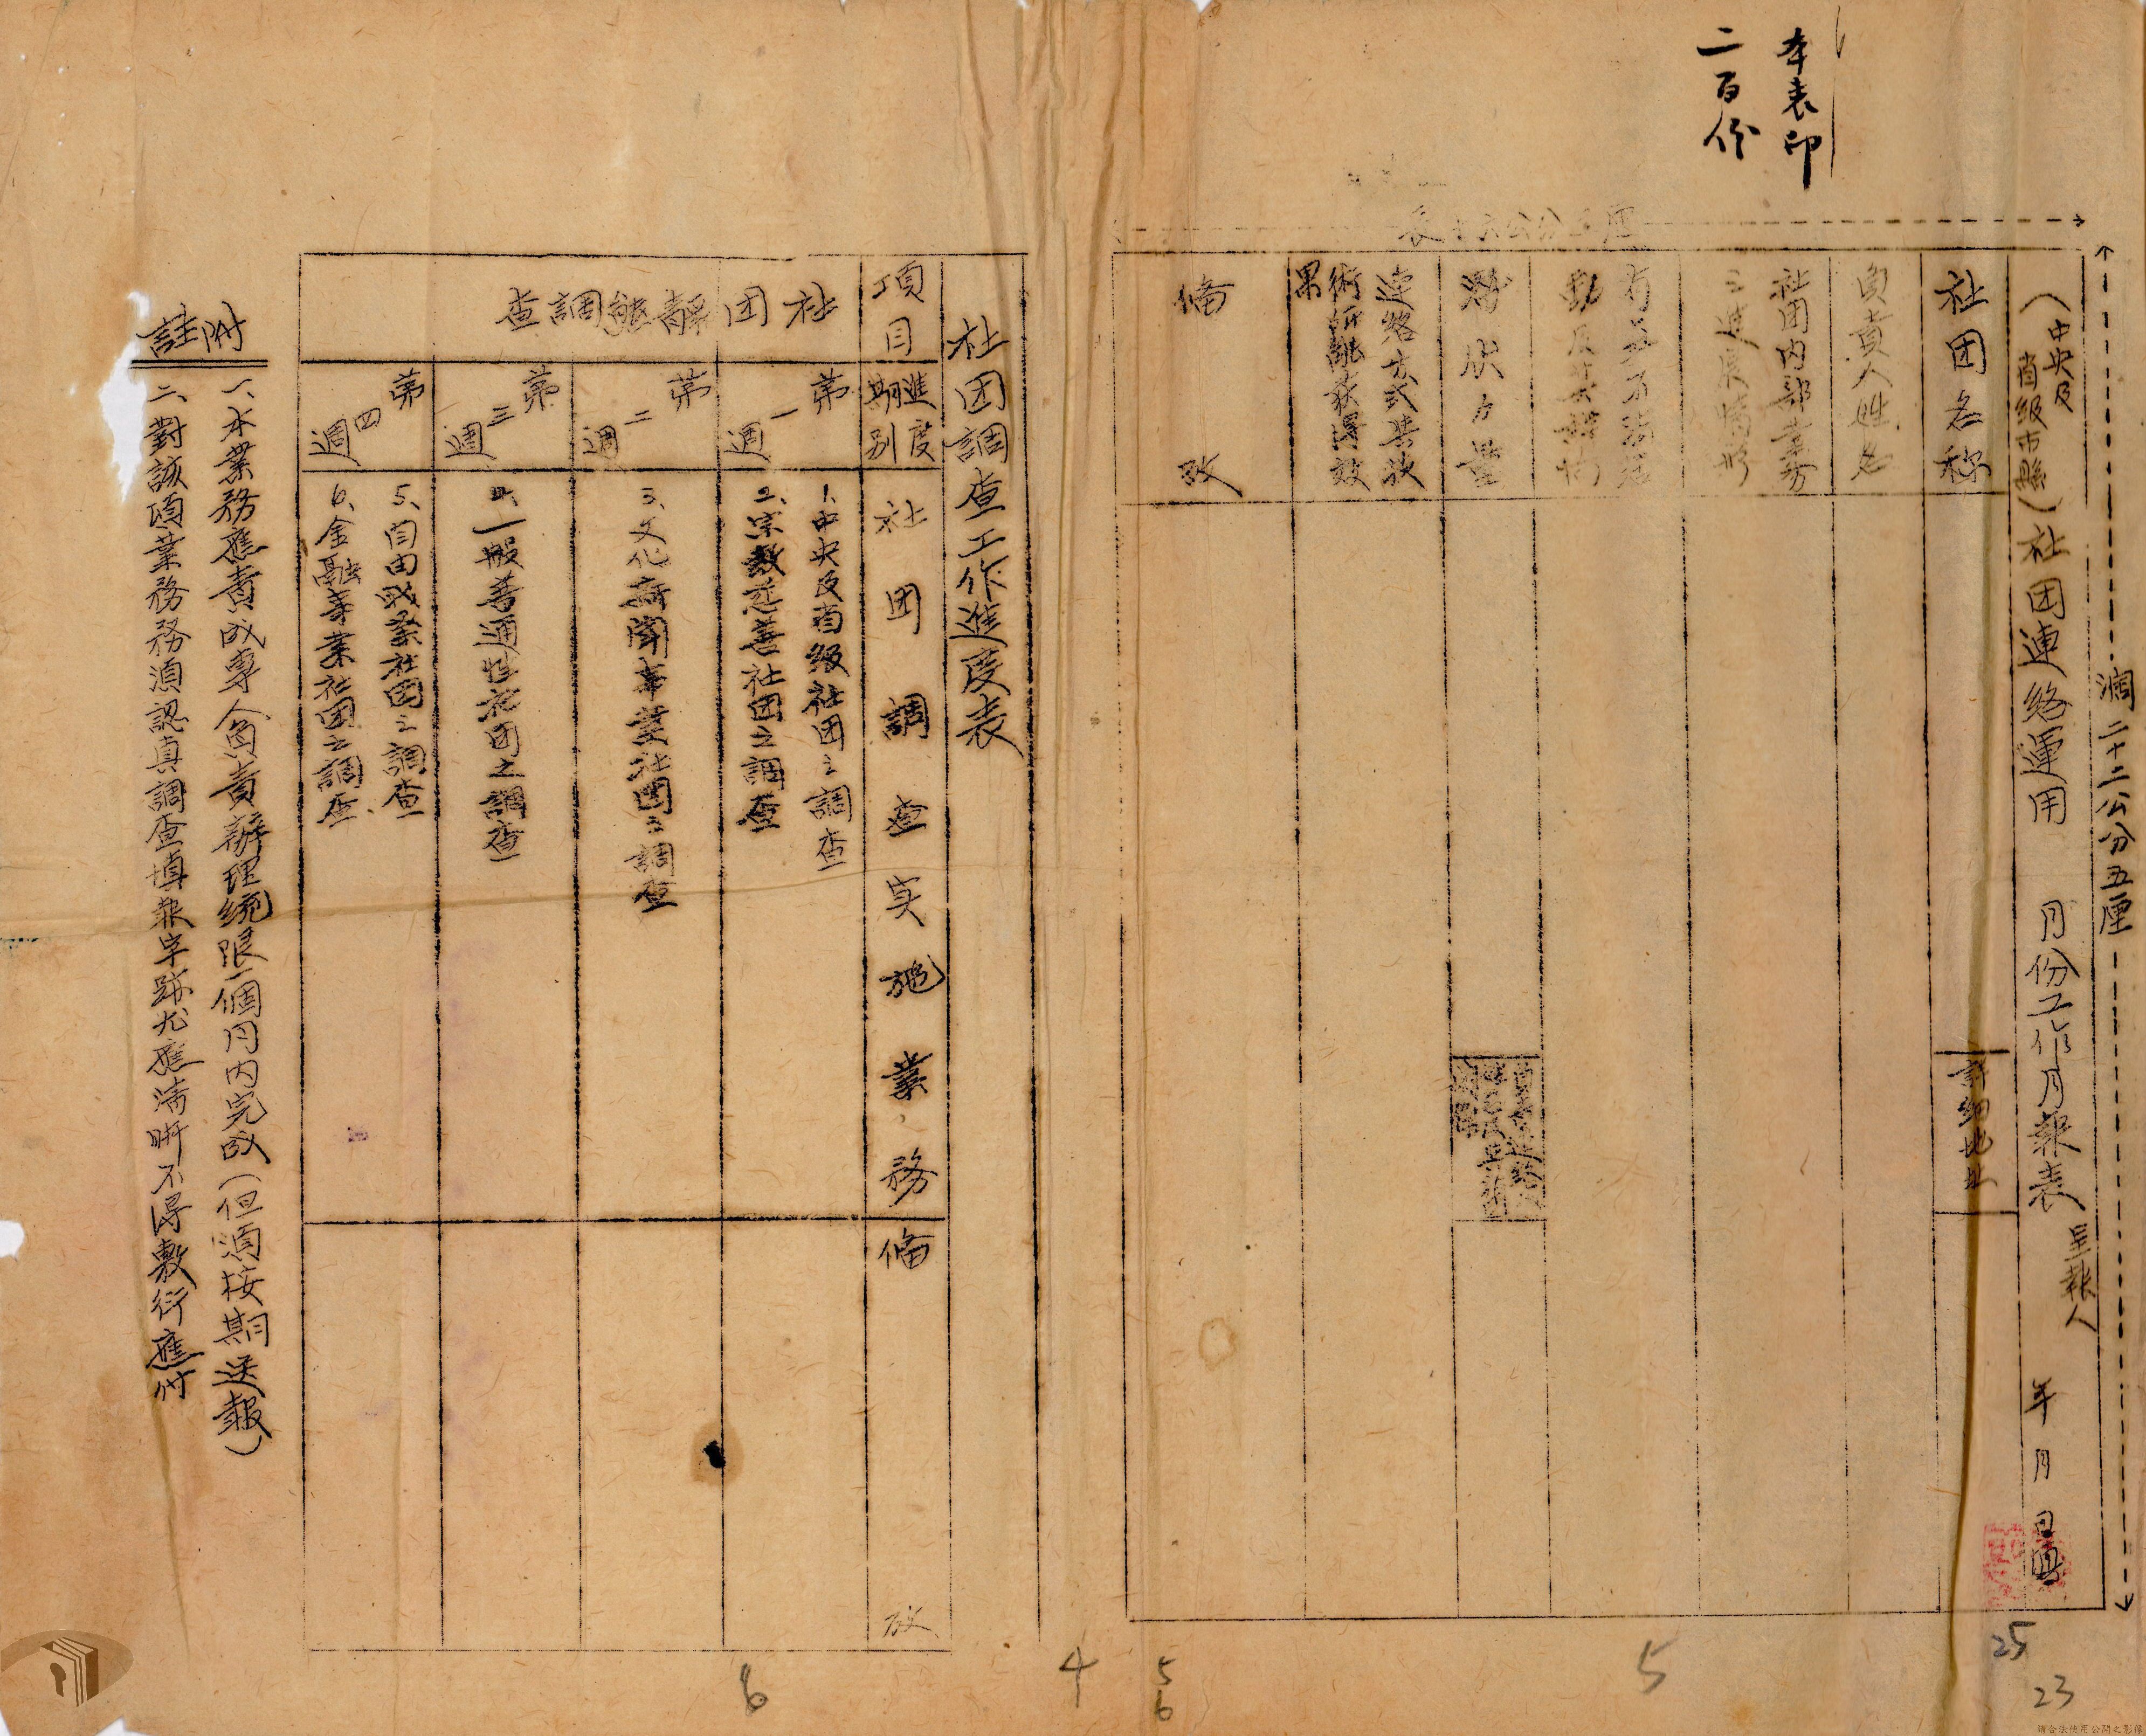 本表印
二百份
闊二十二公分五厘
(中央及省級市縣)社团連絡運用 月份工作月報表 呈報人 年 月 日
社团名称
詳細地址
負責人姓名
社团内部業務
之進展情形
有无不法活
動及其詳情
潛伏力量
連絡方式其狄
術
獲得效
果
備 攷
社团調查工作進度表
項目
進度
期别
社团調查实施業務
備 攷
社团靜態調查
第一週
1、中央及省級社团之調查
2、宗教慈善社团之調查
第二週
3、文化新聞事業社团之調查
第三週
4、一般普通性社团之調查
第四週
5、自由职業社团之調查
6、金融事業社团之調查
附註
一、本業務應責成專人負責辦理統限一個月内完成(但須按期送報)
二、對該項業務務須認真調查填報字跡尤應清晰不得敷衍應付
6
4
5
6
5
25
23
請合法使用公開之影像